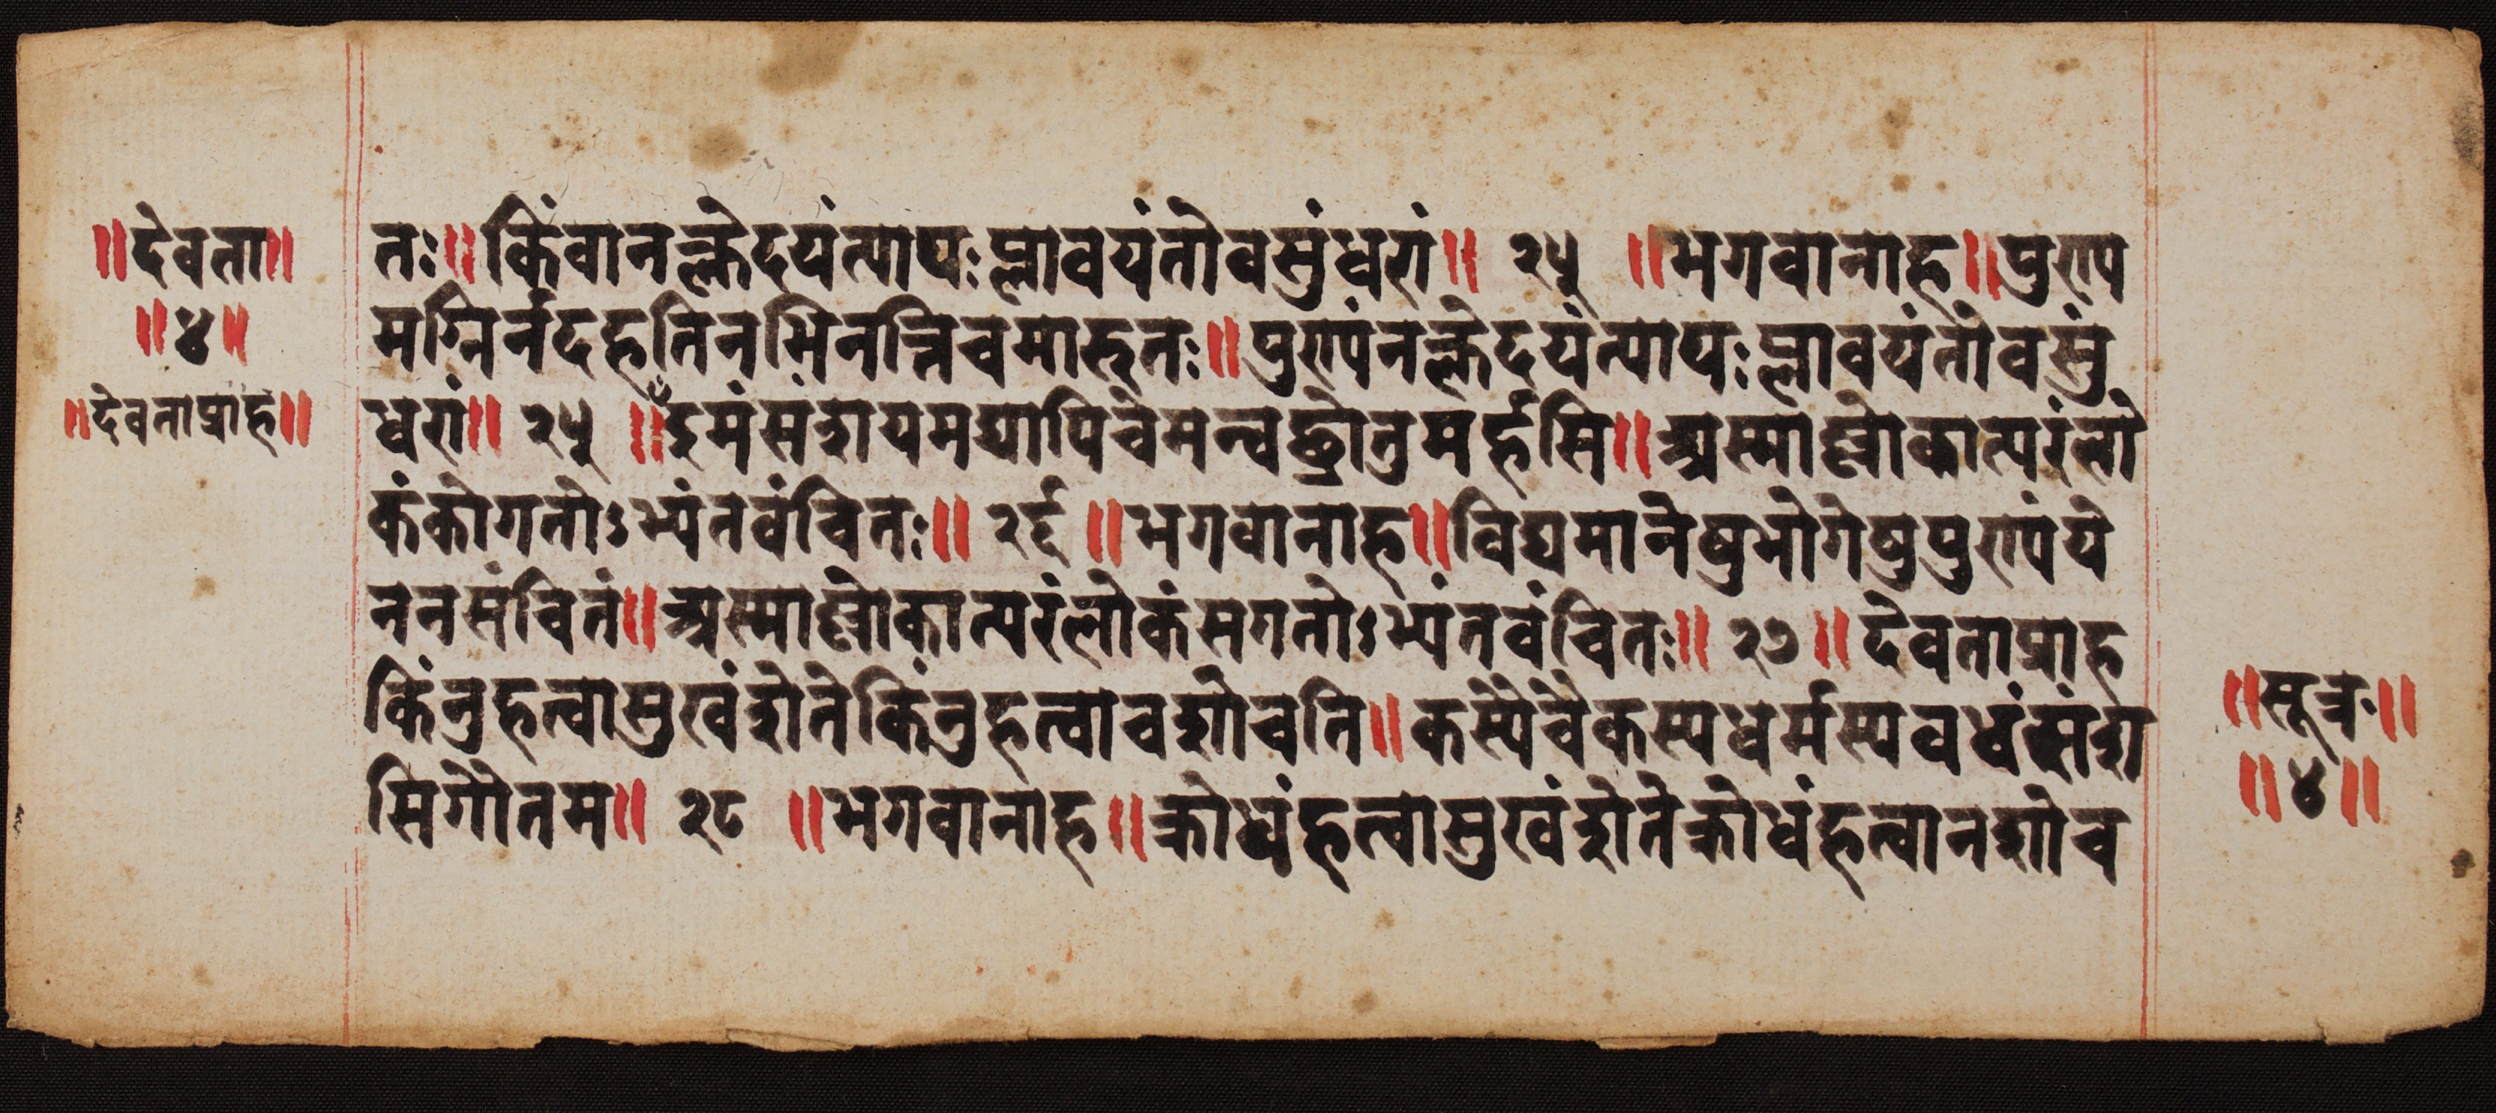 ॥देवता॥
॥४॥
॥देवताप्राह॥
तः॥किंवानल्केदयंत्यापःप्लावयंतोवसुंधरां॥ २५ ॥भगवानाह॥पुण्य
मग्निर्नदहतिनभिनत्तिचमारुतः॥पुण्यंनल्केदयंत्यापःप्लावयंतोवसुं
धरां॥ २५ ॥इमंसंशयमद्यापिचेमन्वछ्रोतुमर्हसि॥अस्माल्लोकात्परंलो
कंकोगतोऽभ्यंतवंचितः॥ २६ ॥भगवानाह॥विद्यमानेषुभोगेषुपुण्यंये
ननसंचितं॥अस्माल्लोकात्परंलोकंसगतोऽभ्यंतवंचितः॥ २७ ॥देवताप्राह
किंनुहत्वासुखंशेतेकिंनुहत्वाचशोचति॥कस्यैचैकस्यधर्मस्यवधंत्संश
सिगौतम॥ २८ ॥भगवानाह॥क्रोधंहत्वासुखंशेतेक्रोधंहत्वानशोच
॥सूत्र॥
॥४॥